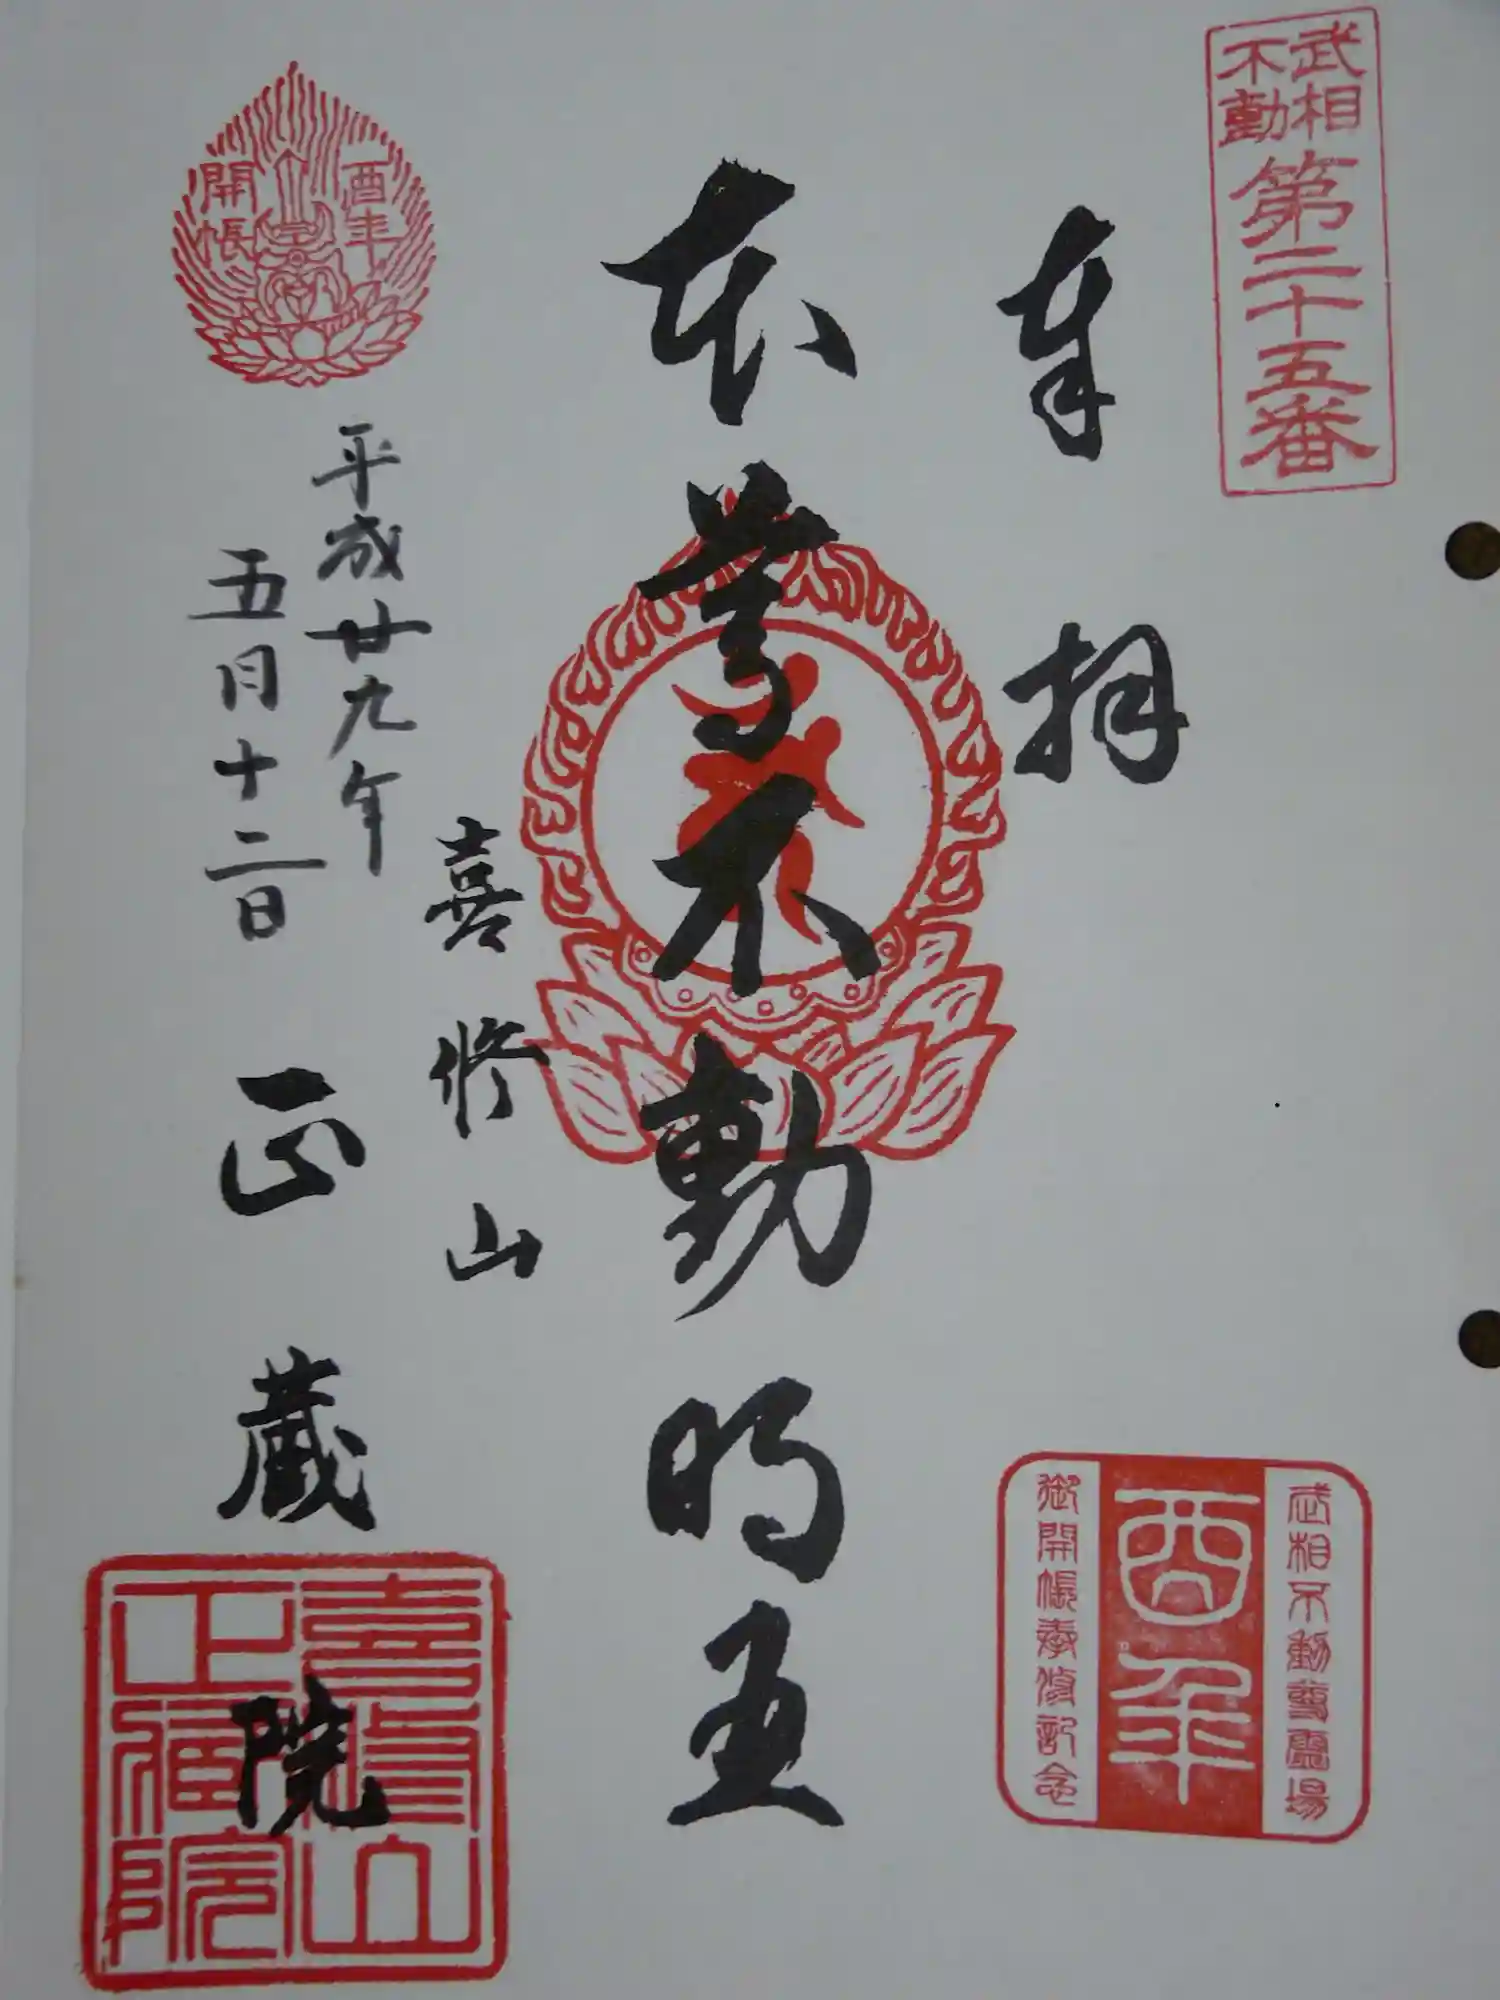 武相
不動
第二十五番
奉拝
本尊不動明王
喜修山
平成廿九年
五月十二日
正蔵院
酉年
開帳
武相不動尊霊場
酉年
御開帳奉修記念
喜修山
正蔵院